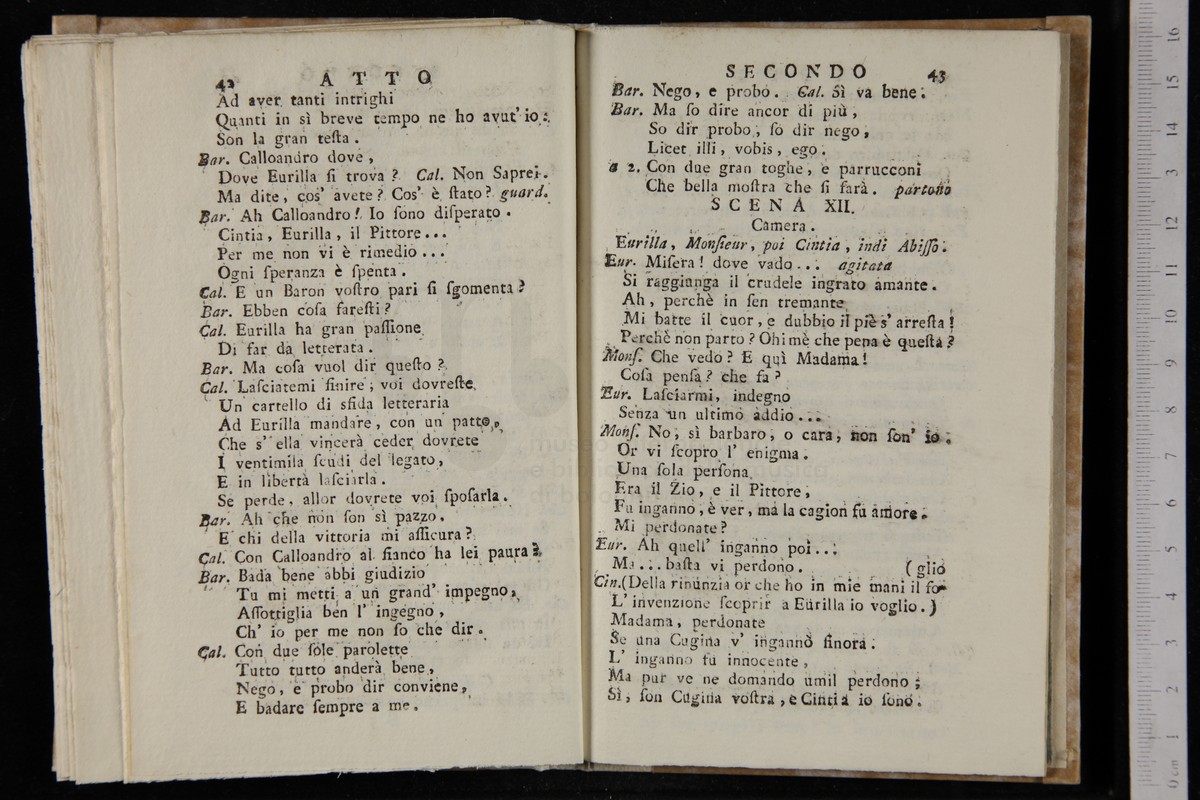 42 ATTO
Ad aver tanti intrighi
Quanti in sì breve tempo ne ho avut' io.
Son la gran teſta.
Bar. Calloandro dove,
Dove Eurilla ſi trova? Cal. Non Saprei.
Ma dite, cos' avete? Cos' è ſtato? guard.
Bar. Ah Calloandro! Io ſono diſperato.
Cintia, Eurilla, il Pittore...
Per me non vi è rimedio...
Ogni ſperanza è ſpenta.
Cal. E un Baron voſtro pari ſi ſgomenta?
Bar. Ebben coſa fareſti?
Cal. Eurilla ha gran paſſione
Di far da letterata.
Bar. Ma coſa vuol dir queſto?
Cal. Laſciatemi finire; voi dovreſte
Un cartello di sfida letteraria
Ad Eurilla mandare, con un patto,
Che s' ella vincerà ceder dovrete
I ventimila ſcudi del legato,
E in libertà laſciarla.
Se perde, allor dovrete voi ſpoſarla.
Bar. Ah che non ſon sì pazzo.
E chi della vittoria mi aſſicura?
Cal. Con Calloandro al fianco ha lei paura?
Bar. Bada bene abbi giudizio
Tu mi metti a un grand' impegno,
Aſſottiglia ben l' ingegno,
Ch' io per me non ſo che dir.
Cal. Con due ſole parolette
Tutto tutto anderà bene,
Nego, e probo dir conviene,
E badare ſempre a me.
SECONDO 43
Bar. Nego, e probo. Cal. Sì va bene.
Bar. Ma ſo dire ancor di più,
So dir probo, ſo dir nego,
Licet illi, vobis, ego.
a 2. Con due gran toghe, e parrucconi
Che bella moſtra che ſi farà. partono
SCENA XII.
Camera.
Eurilla, Monſieur, poi Cintia, indi Abiſſo.
Eur. Miſera! dove vado... agitata
Si raggiunga il crudele ingrato amante.
Ah, perchè in ſen tremante
Mi batte il cuor, e dubbio il piè s' arreſta!
Perchè non parto? Ohimè che pena è queſta?
Monſ. Che vedo? E quì Madama!
Coſa penſa? che fa?
Eur. Laſciarmi, indegno
Senza un ultimo addio...
Monſ. No, sì barbaro, o cara, non ſon' io.
Or vi ſcopro l' enigma.
Una ſola perſona
Era il Zio, e il Pittore,
Fu inganno, è ver, ma la cagion fu amore.
Mi perdonate?
Eur. Ah quell' inganno poi...
Ma... baſta vi perdono. (glio
Cin.(Della rinunzia or che ho in mie mani il fo-
L' invenzione ſcoprir a Eurilla io voglio.)
Madama, perdonate
Se una Cugina v' ingannò finora.
L' inganno fu innocente,
Ma pur ve ne domando umil perdono;
Sì, ſon Cugina voſtra, e Cintia io ſono.